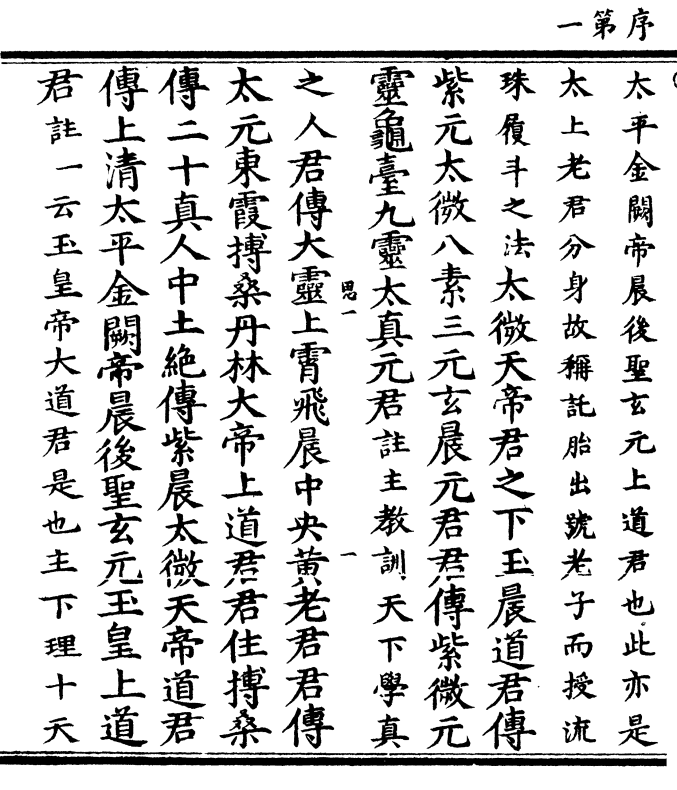 序第一
太平金闕帝晨後聖玄元上道君也此亦是
太上老君分身故稱託胎出號老子而授流
珠履斗之法太微天帝君之下玉晨道君傳
紫元太微八素三元玄晨元君君傳紫微元
靈龜臺九靈太真元君註主教訓天下學真
思一
一
之人君傳大靈上霄飛晨中央黃老君君傳
太元東霞搏桑丹林大帝上道君君住搏桑
傳二十真人中土絶傳紫晨太微天帝道君
傳上清太平金闕帝晨後聖玄元玉皇上道
君註一云玉皇帝大道君是也主下理十天